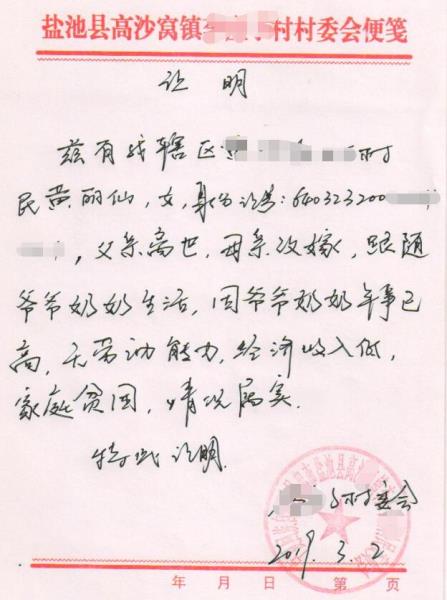 盐池县高沙窝镇村村委会便笺
证明
兹有我辖区村
民黄丽仙，女，身份证号：640323200
，父亲离世，母亲改嫁，跟随
爷爷奶奶生活，因爷爷奶奶年事已
高，无劳动能力，经济收入低，
家庭贫困，情况属实。
特此证明
村委会
2019.3.2
年 月 日 第 页